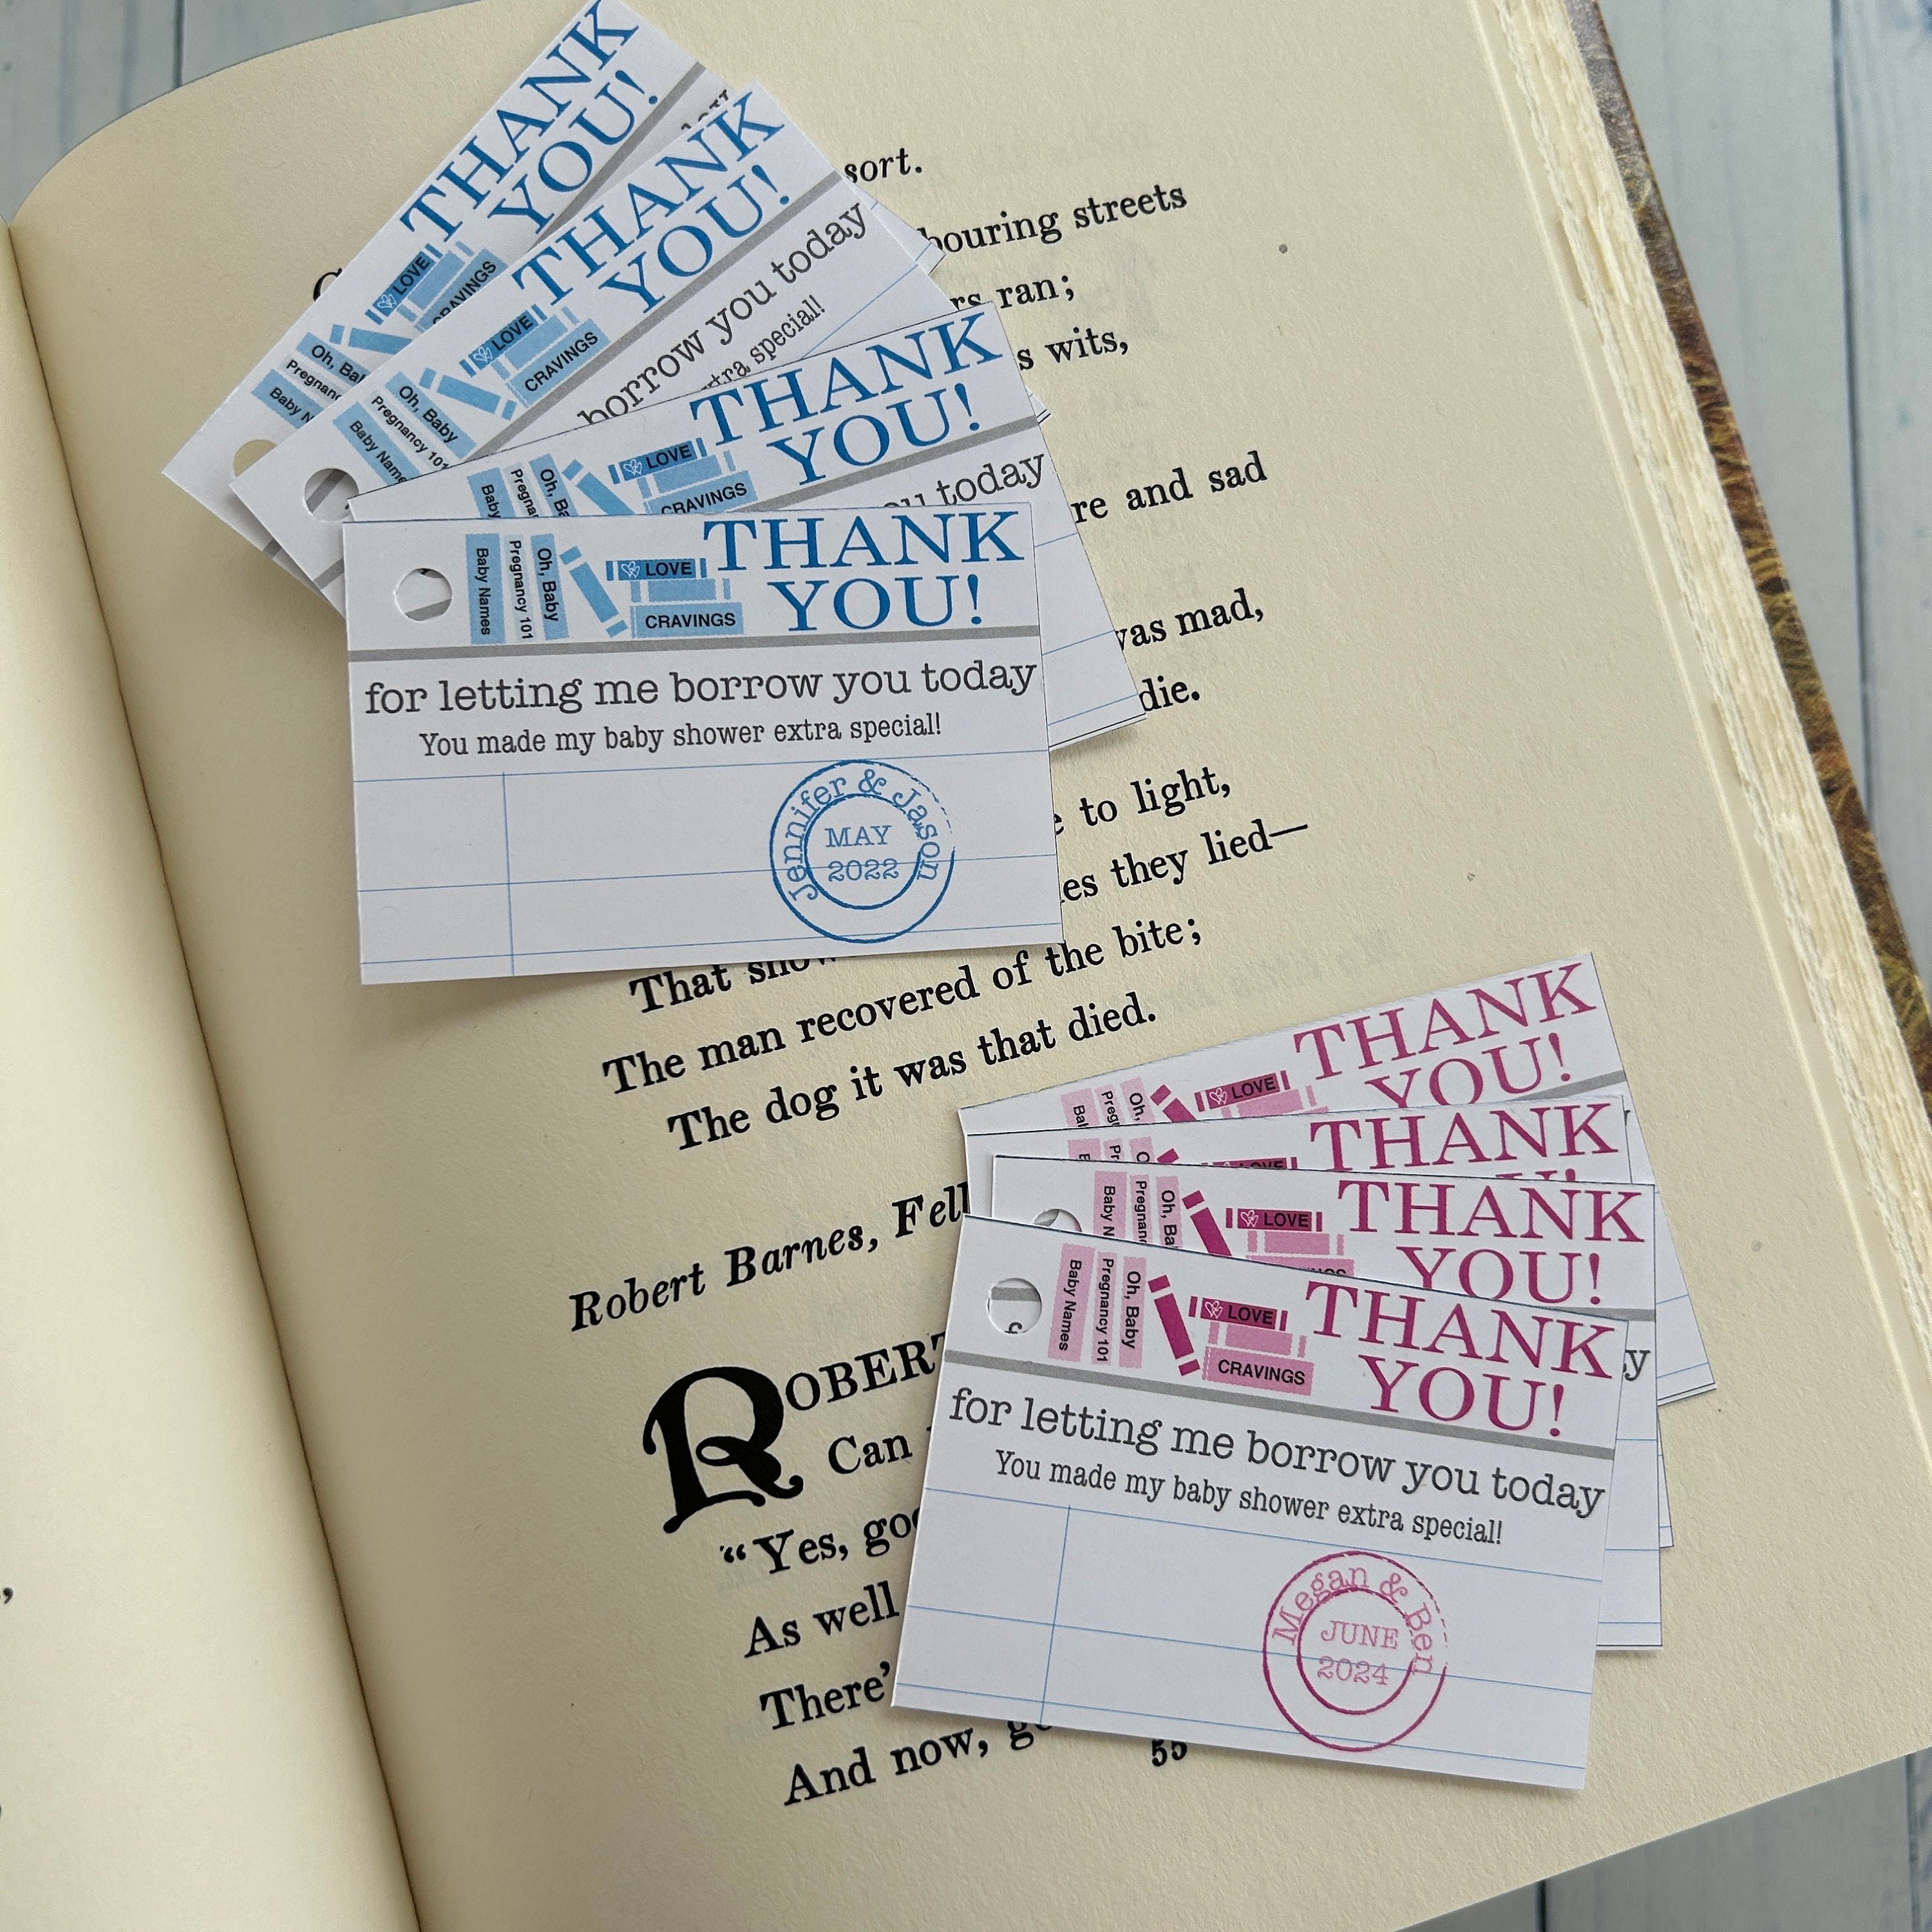 THANK
YOU!
LOVE
CRAVINGS
Oh,
Pregnan
Baby N
THANK
YOU!
LOVE
CRAVINGS
Oh, Baby
Pregnancy 101
Baby Name
borrow you today
special!
THANK
YOU!
LOVE
CRAVINGS
Baby
Pregna
Oh, Ba
today
THANK
YOU!
Baby Names
Pregnancy 101
Oh, Baby
LOVE
CRAVINGS
for letting me borrow you today
You made my baby shower extra special!
Jennifer & Jason
MAY
2022
sort.
bouring streets
ran;
wits,
re and sad
was mad,
die.
to light,
they lied—
That
of the bite;
The man recovered of the bite;
The dog it was that died.
Robert Barnes, Fell
ROBERT
Can
“Yes,
As well
There’
And now,
55
THANK
YOU!
LOVE
Oh,
THANK
THANK
YOU!
Baby N
Pregnan
Oh, Ba
LOVE
THANK
YOU!
Baby Names
Pregnancy 101
Oh, Baby
LOVE
CRAVINGS
for letting me borrow you today
You made my baby shower extra special!
Megan & Ben
JUNE
2024